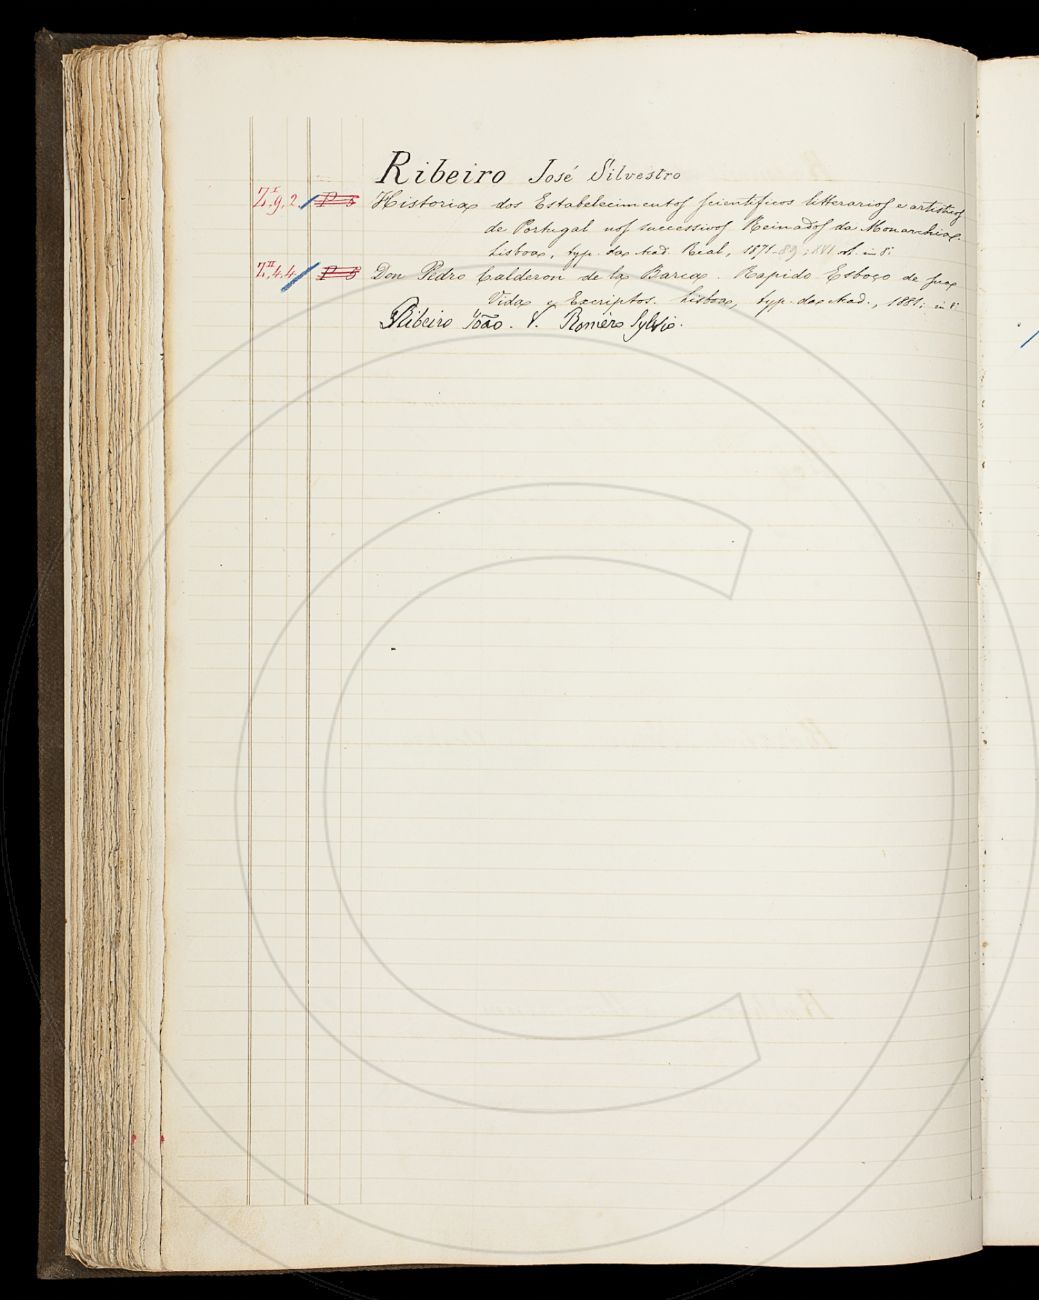 Ribeiro José Silvestro
Z.I.9.2. P 5 Historia dos Estabelecimentos scientificos litterarios e artisticos
de Portugal nos successivos Reinados da Monarchia.
Lisboa, typ. da Acad. Real, 1871-89; vol. in 8º
Z.II.4.4. P 8 Don Pidro Calderon de la Barca. Rapido Esboço de sua
Vida y Escriptos. Lisboa, typ. da Acad., 1881; in 8º
Ribeiro João. V. Roméro Sylvio.